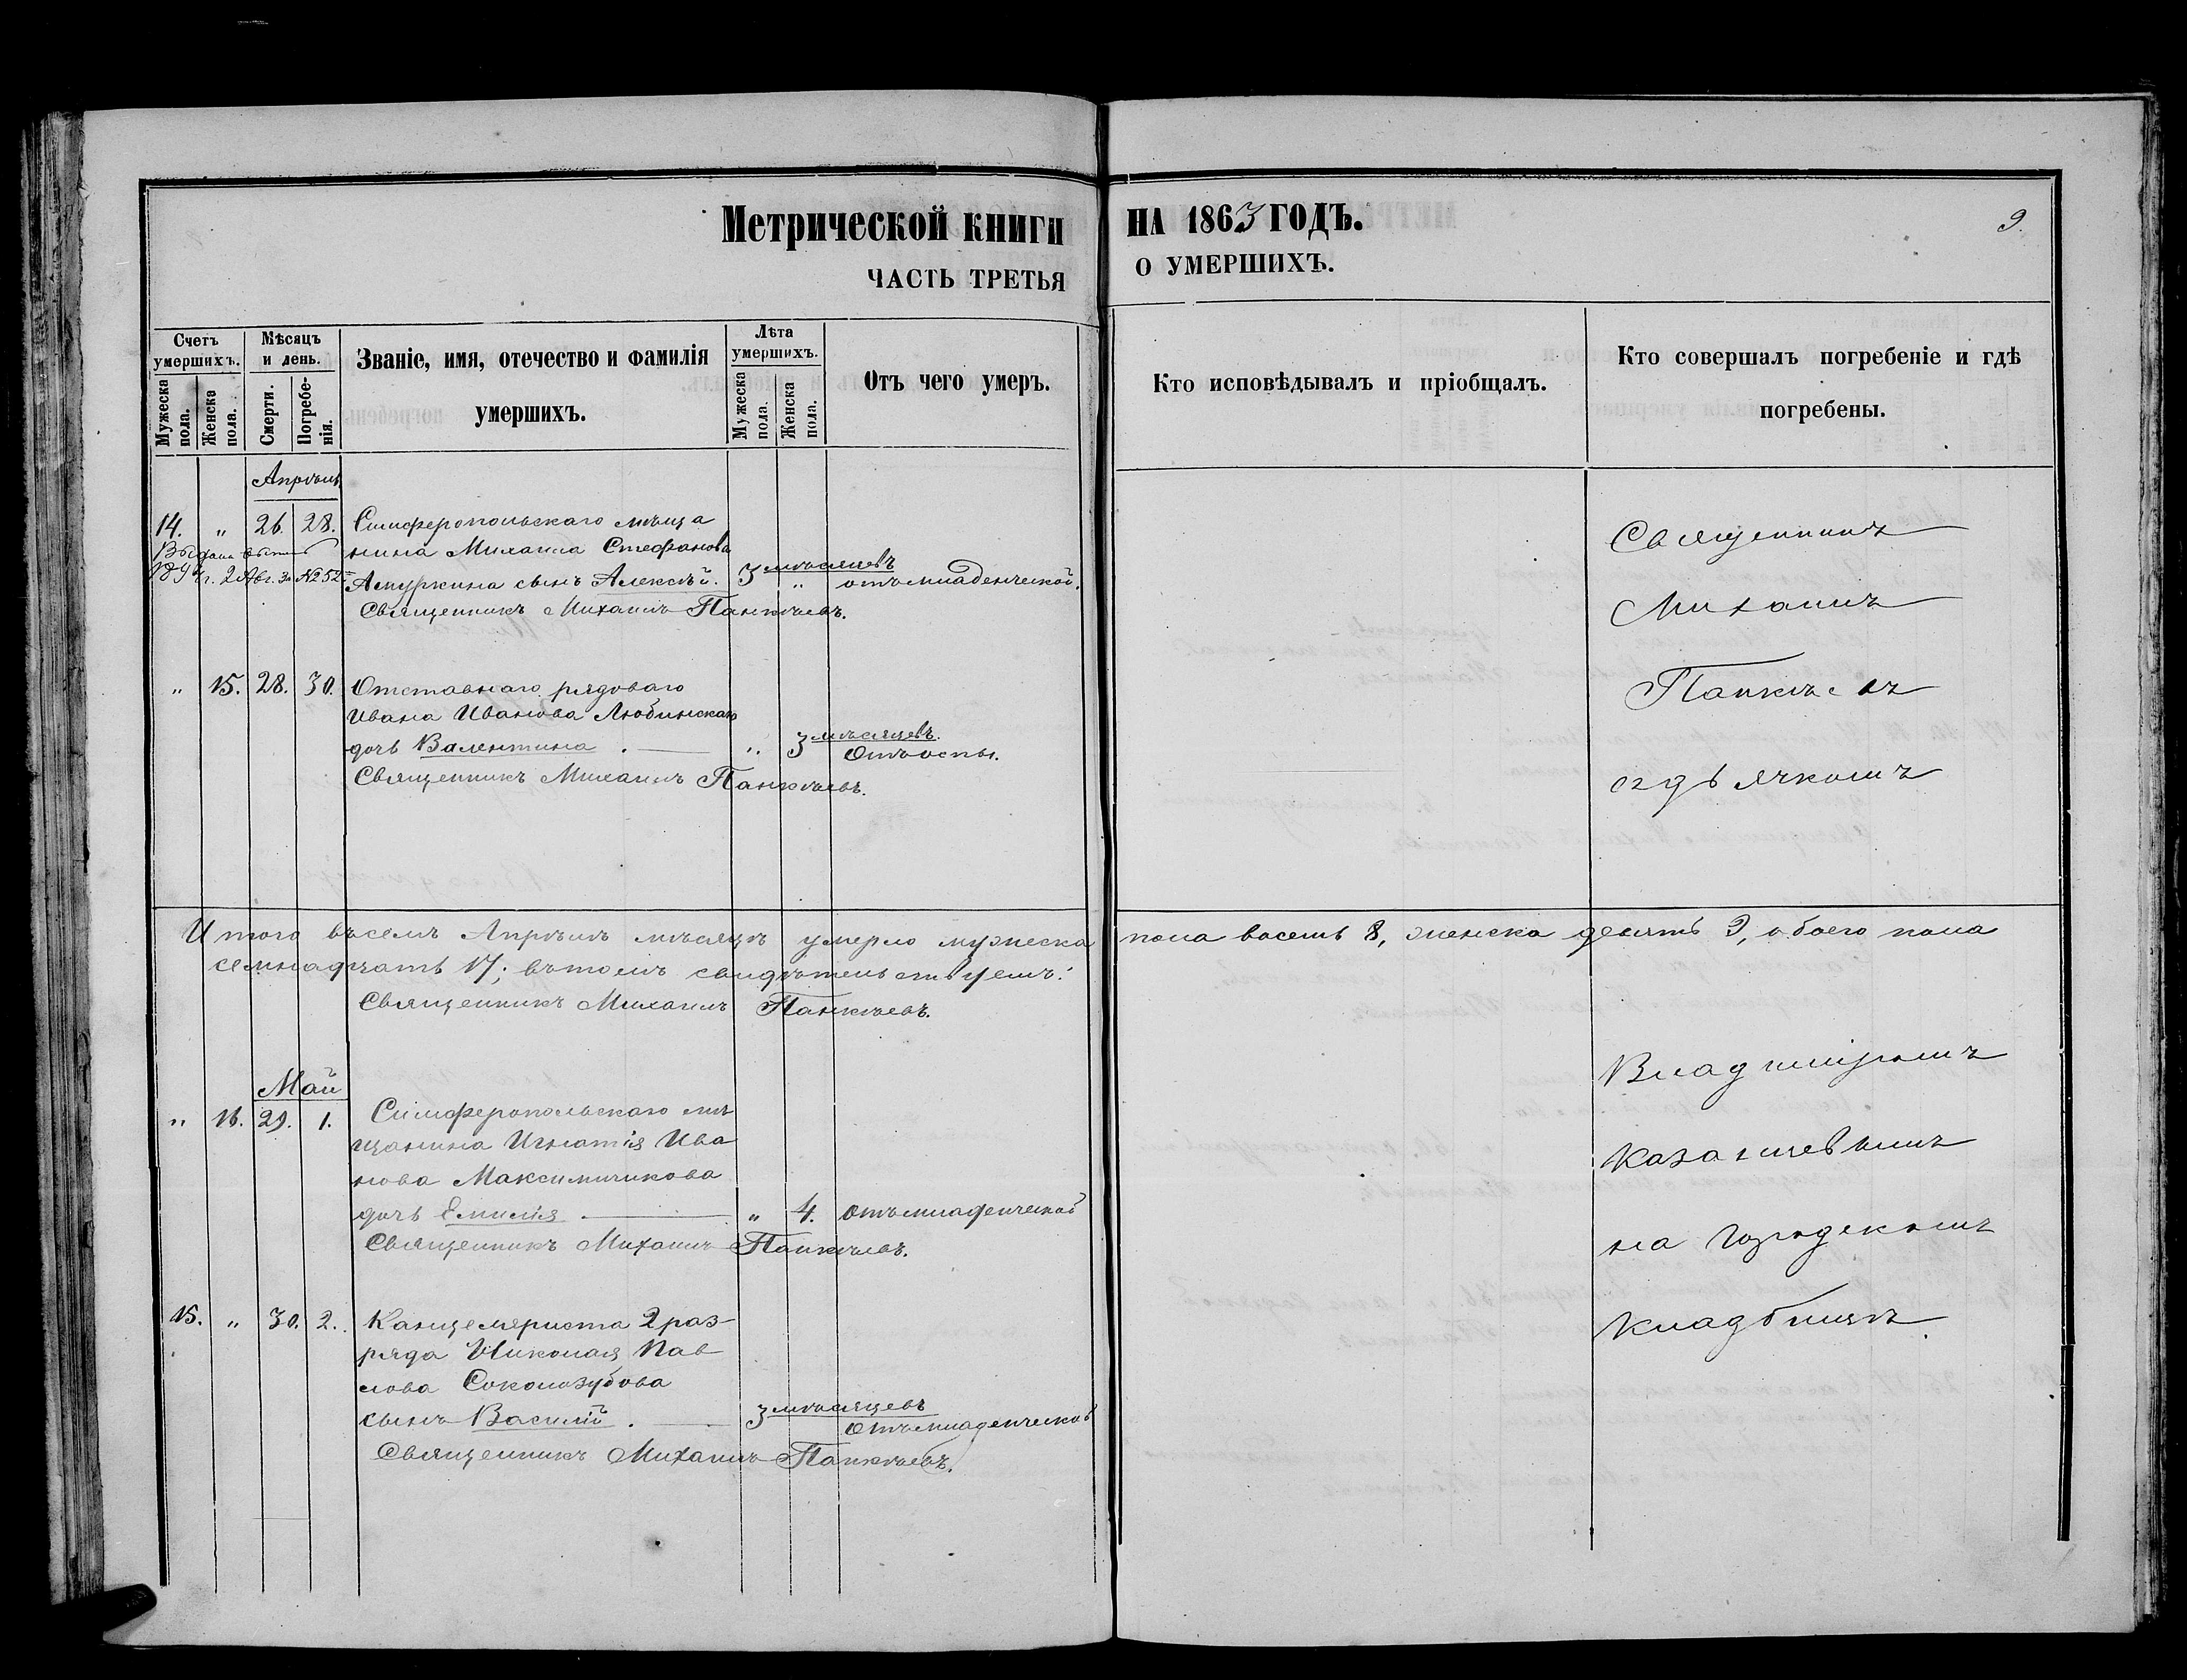 Метрической книги на 1863 годъ.
9.
часть третья о умершихъ.
Счетъ умершихъ.
Мужеска пола.
Женска пола.
Мѣсяцъ и день.
Смерти.
Погребенія.
Званіе, имя, отечество и фамилія
умершихъ.
Лѣта умершихъ.
Мужеска пола.
Женска пола.
Отъ чего умеръ.
Кто исповѣдывалъ и пріобщалъ.
Кто совершалъ погребеніе и гдѣ
погребены.
Апрѣль
14. " 26. 28. Симферопольскаго мѣща
нина Михаила Стефанова
Амуркина сынъ Алексѣй. 3 мѣсяцевъ " отъ младенческой.
Священникъ Михаилъ Панкѣевъ.
" 15. 28. 30. Отставнаго рядоваго
Ивана Иванова Любинскаго
дочь Валентина. " 3 мѣсяцевъ. Отъ оспы.
Священникъ Михаилъ Панкѣевъ.
Священникъ
Михаилъ
Панкѣевъ
съ дьячкомъ
Итого въ семъ Апрѣлѣ мѣсяцѣ умерло мужеска пола восемь 8, женска девять 9, обоего пола
семнадцать 17; въ томъ свидѣтельствуемъ:
Священникъ Михаилъ Панкѣевъ.
Май
" 16. 29. 1. Симферопольскаго мѣ
щанина Игнатія Ива
нова Максимичикова
дочь Емилія " 4. отъ младенческой
Священникъ Михаилъ Панкѣевъ.
15. " 30. 2. Канцеляриста 2 раз-
ряда Николая Пав
лова Соколозубова
сынъ Василій. 3 мѣсяцевъ Отъ младенческой
Священникъ Михаилъ Панкѣевъ.
Владиміромъ
на городскомъ
кладбищѣ